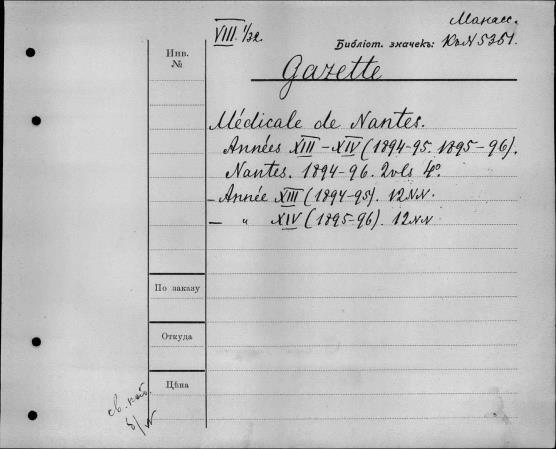 VIII 1/32.
Манасс.
Библіот. значекъ: К. № 5351.
Инв.
№
Gazette
Médicale de Nantes.
Années XIII–XIV (1894-95. 1895-96).
Nantes. 1894-96. 2 vls 4º.
– Année XIII (1894-95). 12 NN.
– „ XIV (1895-96). 12 NN
По заказу
Откуда
Цѣна